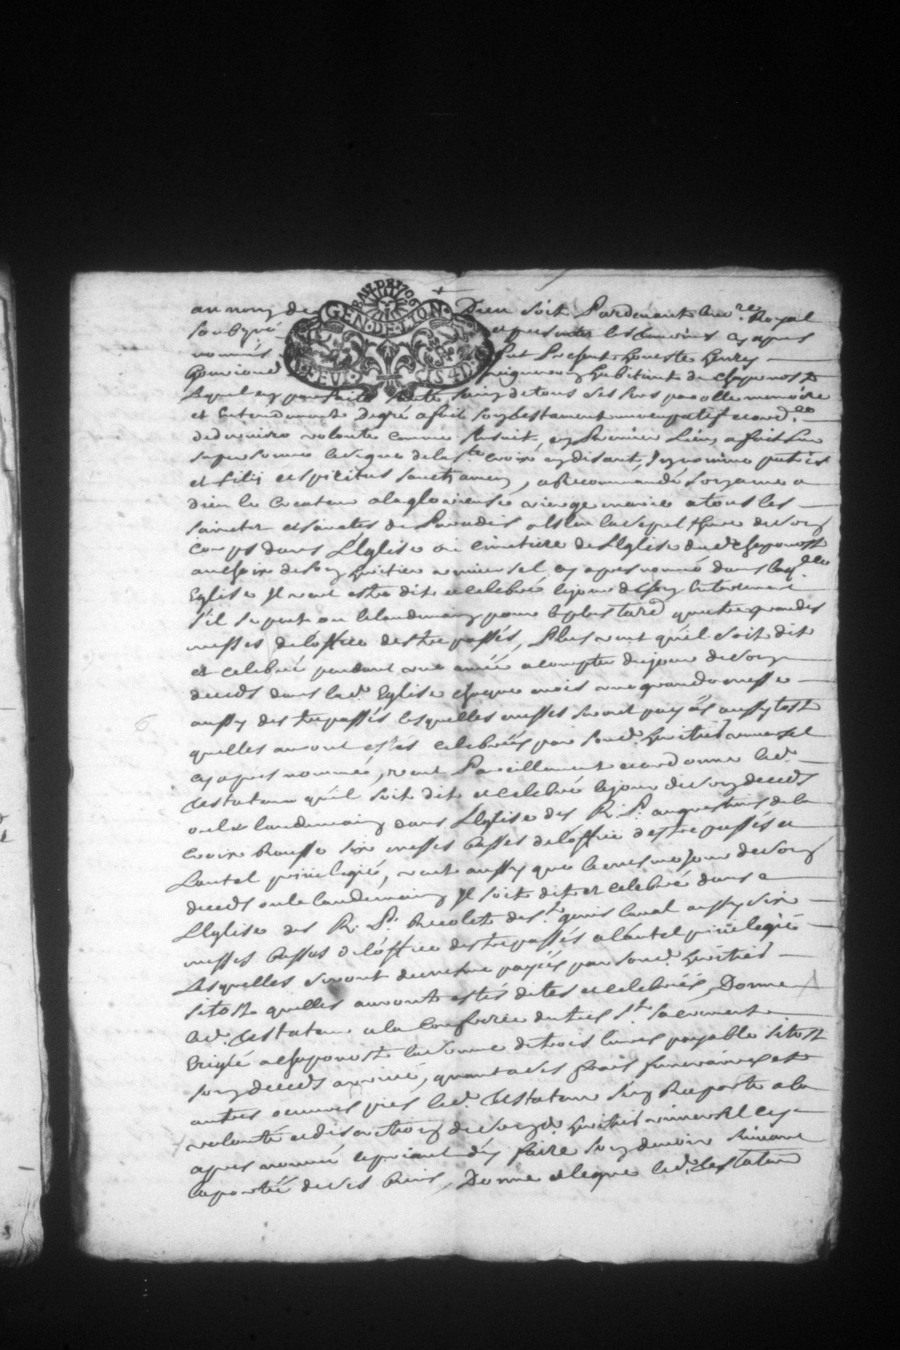 au nom de Dieu soit Pardevant le no.re Royal
soubzné et presents les temoins cy apres
BAIL.DE.1706
GEN.DE.LYON.
nommés fut Present honeste henry
vigneron habitant de chaponost
Lequel en parfaite sante soing de tous ses sens parolle memoire
et Entendement de gré a fait son testament nuncupatif et ord.ce
de derniere volonte comme sensuit, en Premier Lieu, a fait sur
sa personne le signe de la ste croix en disant, In nomine patris
et filij et spiritus sancti amen, a Recommandé son ame a
dieu le Createur a la glorieuse vierge marie a tous les
saincts et sainctes de Paradis a Esleu la sepulthure de son
corps dans L'Eglise ou cimetiere de l'Eglise dud. chaponost
au choix de son heritier universel cy apres nommé dans laq.lle
Eglise Il veut estre dit et celebré le jour de son Enterrement
s'il se peut ou le landemain pour le plus tard quatre grandes
messes de l'office des trepassés, Plus veut qu'il soit dit
et celebré pendant une année a compter du jour de son
deceds dans lad. Eglise chaque mois une grande messe
aussy des trepassés lesquelles messes seront payées aussytost
quelles auront estés celebrées par sond. heritier universel
cy apres nommé, veut Pareillement et ordonne led.
testateur qu'il soit dit et celebré le jour de son deceds
ou le landemain dans L'Eglise des R. P. augustins de la
Croix Rousse six messes basses de l'office des trepassés a
L'autel privilegié, veut aussy que le mesme jour de son
deceds ou le landemain Il soit dit et celebré dans
L'Eglise des R. P. Recolets de st genis laval aussy six
messes basses de l'office des trepassés a l'autel privilegié
Lesquelles seront de mesme payées par sond. heritier
sitost quelles auront estés dites et celebrées, Donne
led. testateur a la Confrerie du tres st sacrement
Erigée a chaponost la somme de trois livres payable sitost
son deceds arrivé, quant a ses frais funeraires et
autres oeuvres pies led. testateur s'en Rapporte a la
volonté et discretion de sond. heritier universel cy
apres nommé le priant d'en faire son devoir suivant
la portée de ses biens, Donne et legue led. testateur